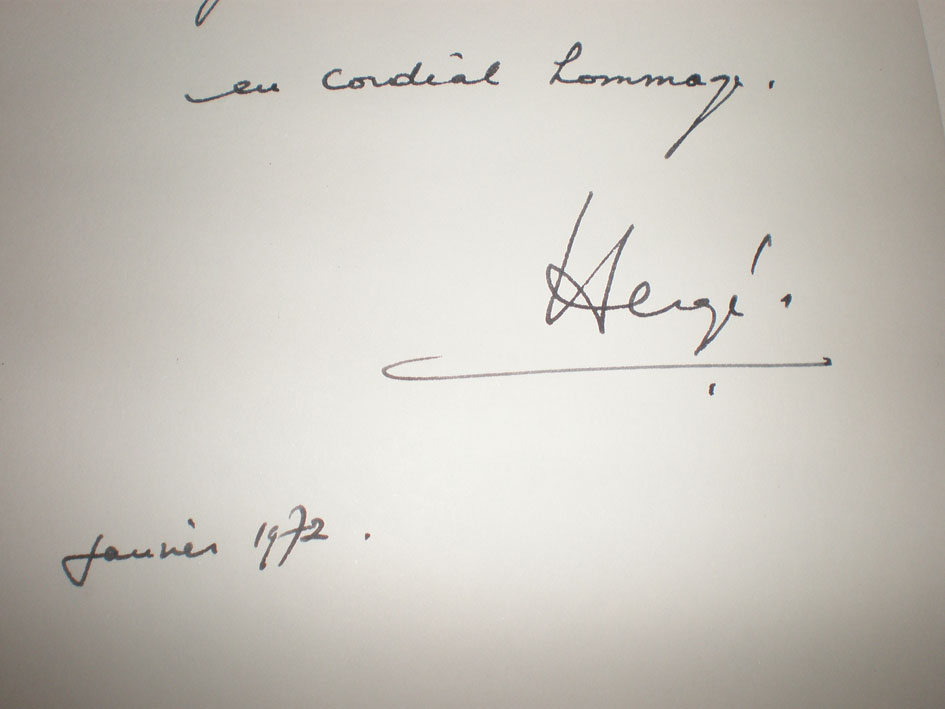 en cordial hommage.
Hergé.
Janvier 1972.